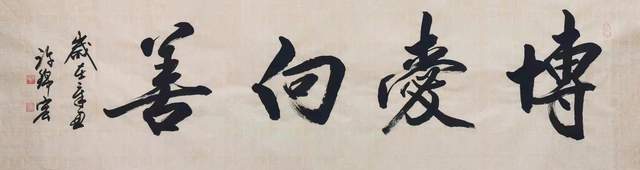 博愛向善
歲在辛丑